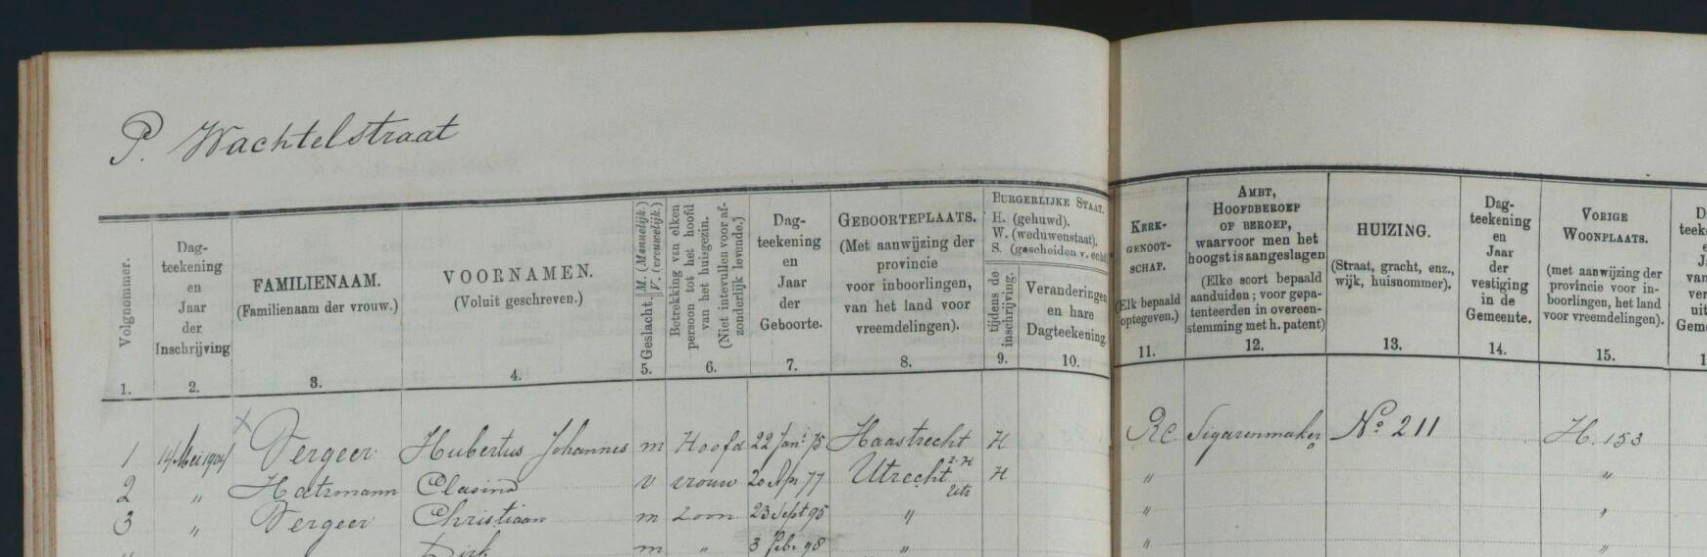 P. Wachtelstraat
Volgnommer.
1.
Dag-
teekening
en
Jaar
der
Inschrijving
2.
FAMILIENAAM.
(Familienaam der vrouw.)
3.
VOORNAMEN.
(Voluit geschreven.)
4.
Geslacht. M. (Mannelijk.)
V. (vrouwelijk.)
5.
Betrekking van elken
persoon tot het hoofd
van het huisgezin.
(Niet intevullen voor af-
zonderlijk levende.)
6.
Dag-
teekening
en
Jaar
der
Geboorte.
7.
GEBOORTEPLAATS.
(Met aanwijzing der
provincie
voor inboorlingen,
van het land voor
vreemdelingen).
8.
BURGERLIJKE STAAT.
H. (gehuwd).
W. (weduwenstaat).
S. (gescheiden v. echt
tijdens de
inschrijving.
9.
Veranderingen
en hare
Dagteekening.
10.
KERK-
GENOOT-
SCHAP.
(Elk bepaald
optegeven.)
11.
AMBT,
HOOFDBEROEP
OF BEROEP,
waarvoor men het
hoogst is aangeslagen
(Elke soort bepaald
aanduiden; voor gepa-
tenteerden in overeen-
stemming met h. patent)
12.
HUIZING.
(Straat, gracht, enz.,
wijk, huisnommer).
13.
Dag-
teekening
en
Jaar
der
vestiging
in de
Gemeente.
14.
VORIGE
WOONPLAATS.
(met aanwijzing der
provincie voor in-
boorlingen, het land
voor vreemdelingen).
15.
1 14 Mei 1904 Vergeer Hubertus Johannes m Hoofd 22 Jan: 75 Haastrecht H Rc Sigarenmaker No 211 H. 153
2 " Hatzmann Clasina v vrouw 20 Apr 77 Utrecht H " "
3 " Vergeer Christiaan m zoon 23 Sept 95 " " "
" Dirk m " 3 Feb. 98 " " "